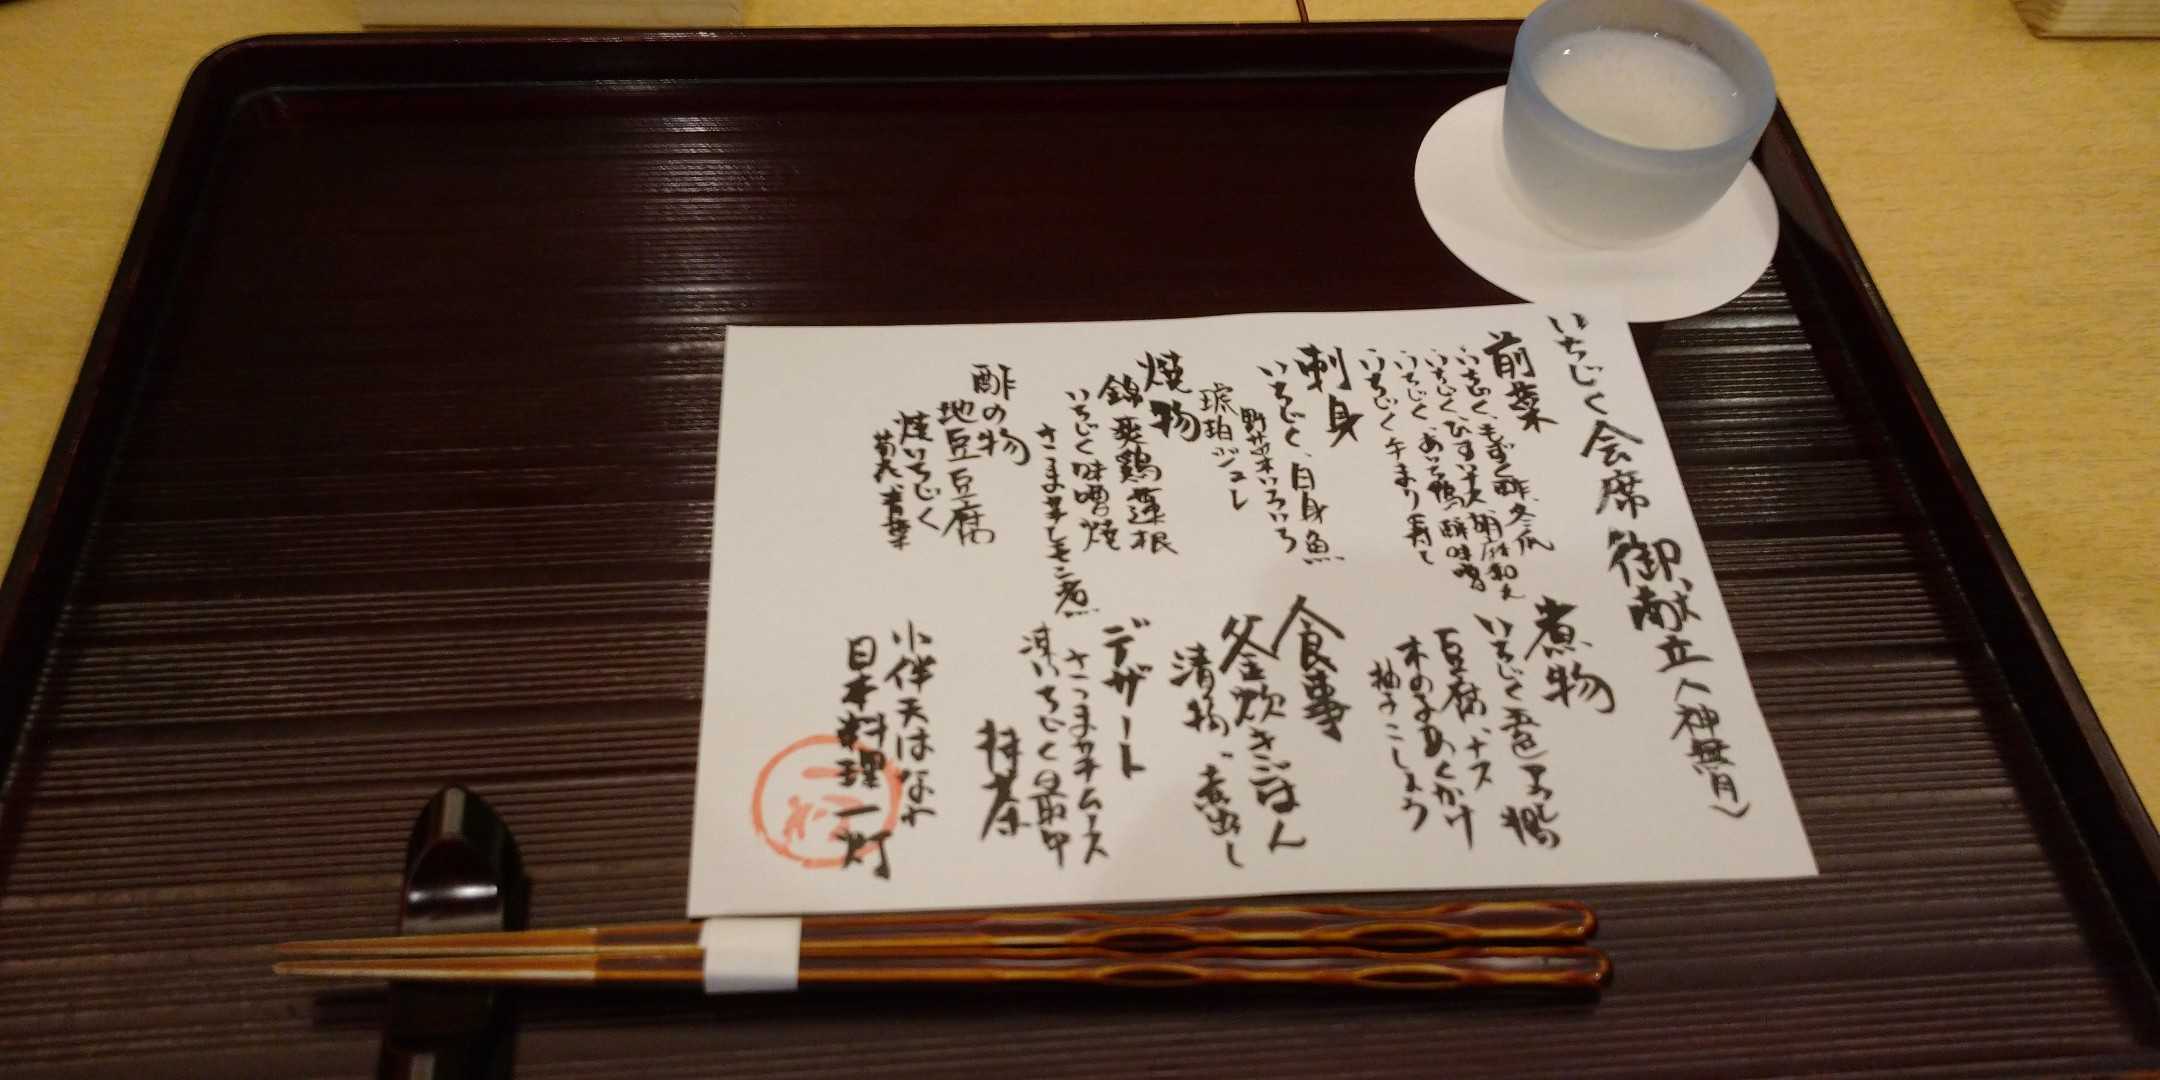 いちじく会席 御献立（神無月）
前菜
いちじく、もずく酢、冬瓜
いちじく、ひすい 胡麻和え
いちじく、あいち鴨 酢味噌
いちじく 手まり寿し
刺身
いちじく、白身魚
野菜いろいろ
琥珀ジュレ
焼物
錦爽鶏 蓮根
いちじく味噌焼
さつま芋レモン煮
酢の物
地豆豆腐
焼いちじく
菊花、青菜
煮物
いちじく
豆腐、ナス
木の子あんかけ
柚子こしょう
食事
釜炊きごはん
漬物、煮出し
デザート
さつま芋ムース
凍いちじく最中
抹茶
小伴天はなれ
日本料理一灯